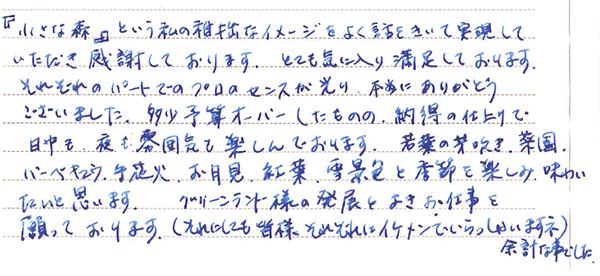 『小さな森』という私の稚拙なイメージをよく話をきいて実現して
いただき感謝しております。とても気に入り満足しております。
それぞれのパートでのプロのセンスが光り、本当にありがとう
ございました。多少予算オーバーしたものの、納得の仕上りで
日中も、夜も雰囲気を楽しんでおります。若葉の芽吹き、菜園、
バーベキュウ、手花火、お月見、紅葉、雪景色と季節を楽しみ、味わい
たいと思います。グリーンランド様の発展とよきお仕事を
願っております。（それにしても皆様、それぞれにイケメンでいらっしゃいますネ）
余計な事でした